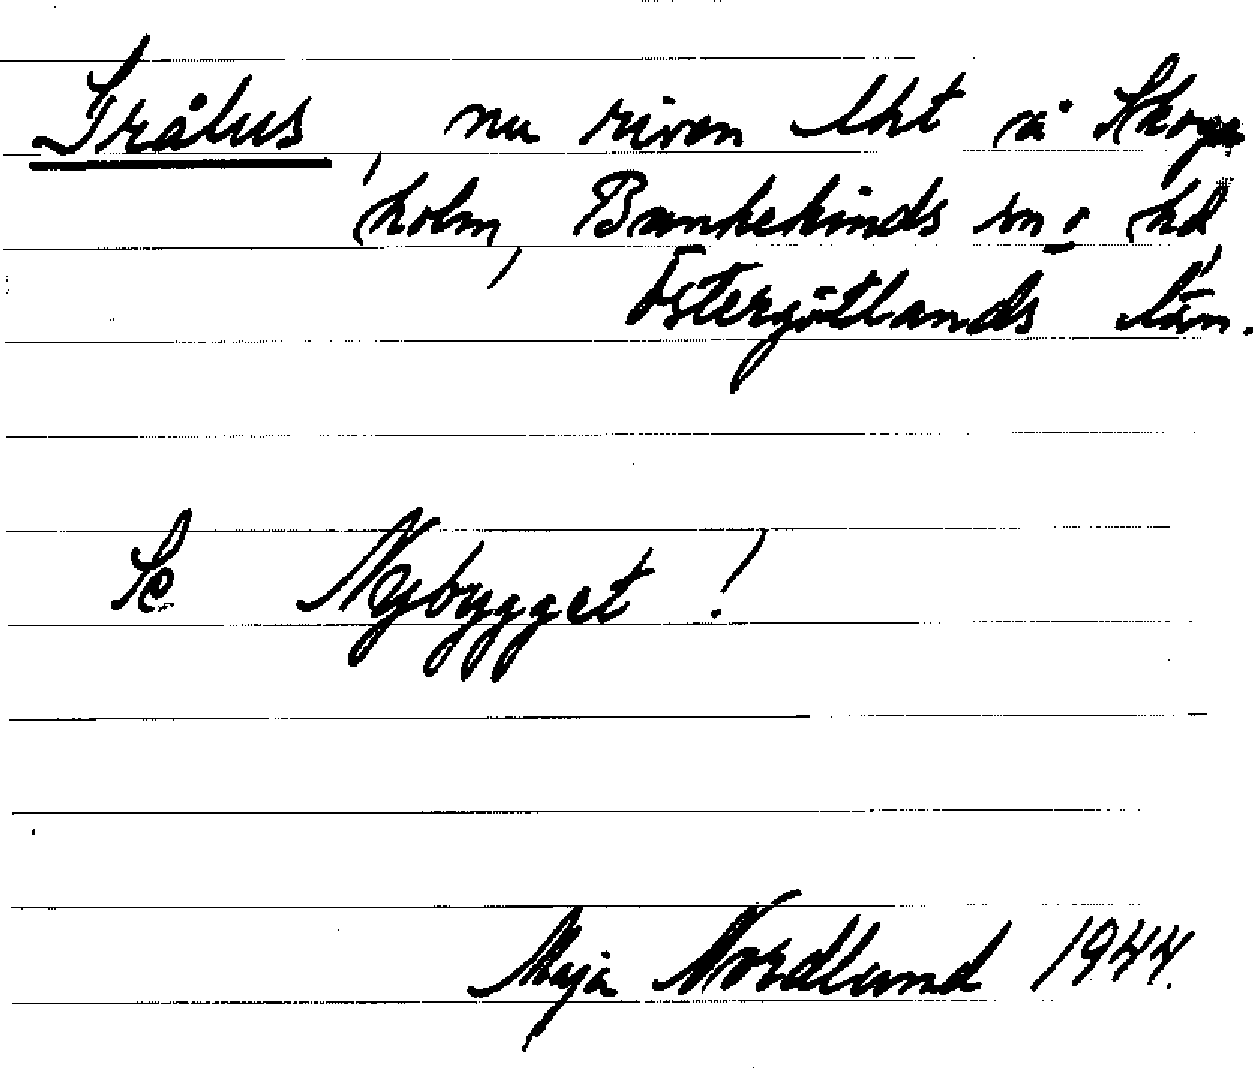 Trålus, nu riven lht å Skogs
holm, Bankekinds sn o hd,
Östergötlands län.
Se Nybygget!
Maja Nordlund 1944.